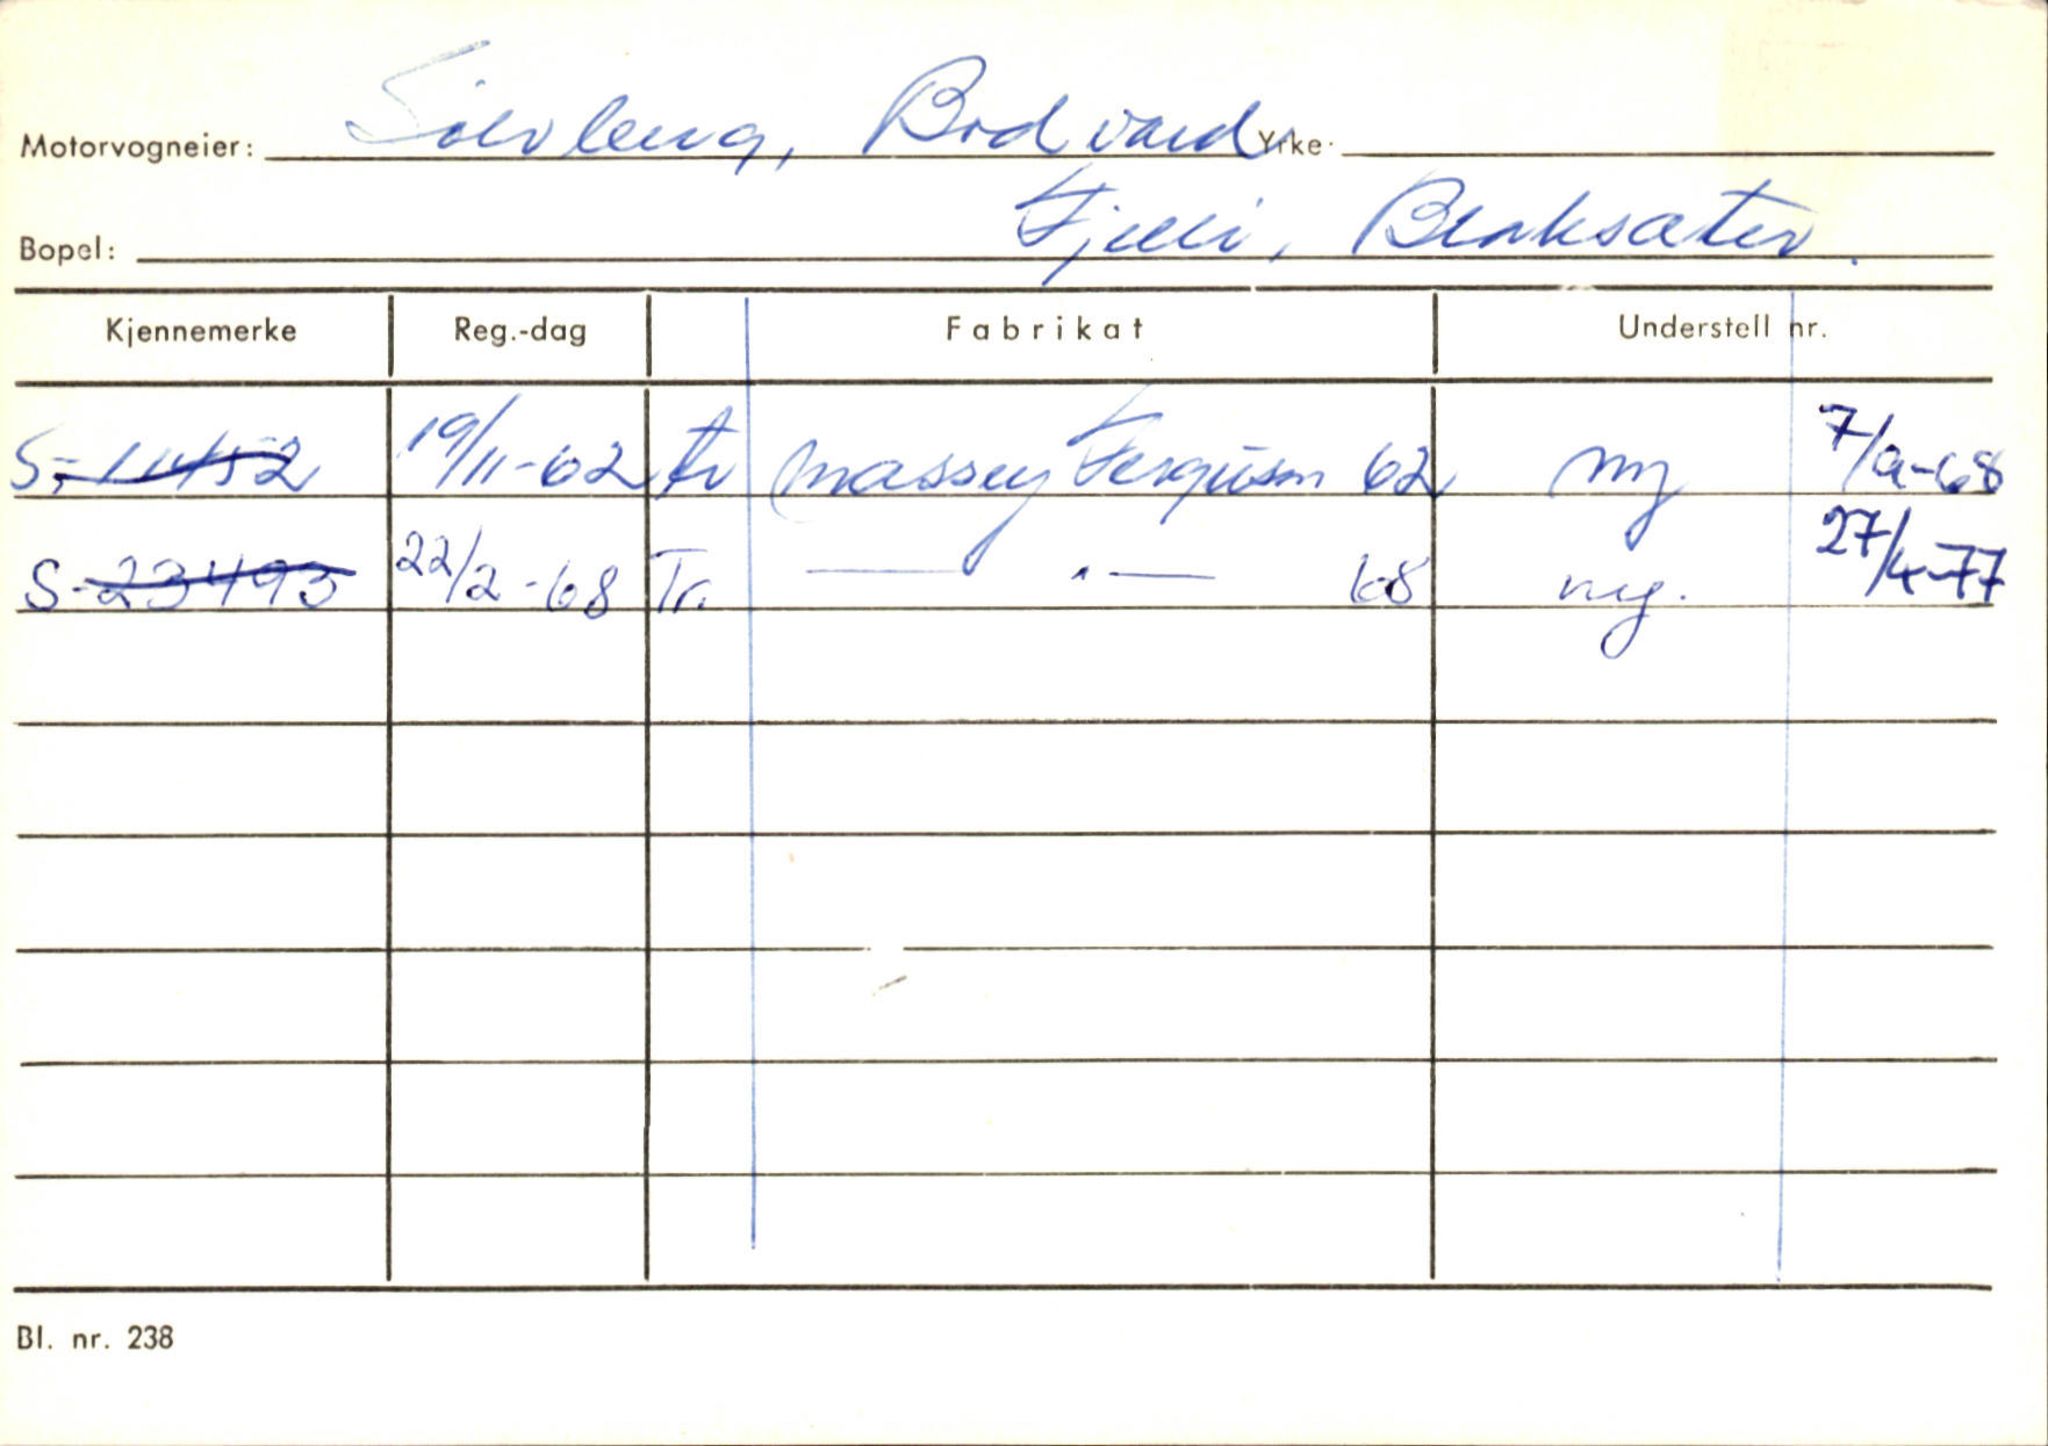 Motorvogneier: Sølvberg, Bodvard Yrke:
Bopel: Fjelli, Blaksæter.
Kjennemerke Reg.-dag Fabrikat Understell nr.
S-11452 19/11-62 tr Massey Ferguson 62 ny 7/9-68
S-23493 22/2-68 Tr. — " — 68 ny. 27/4-77
Bl. nr. 238